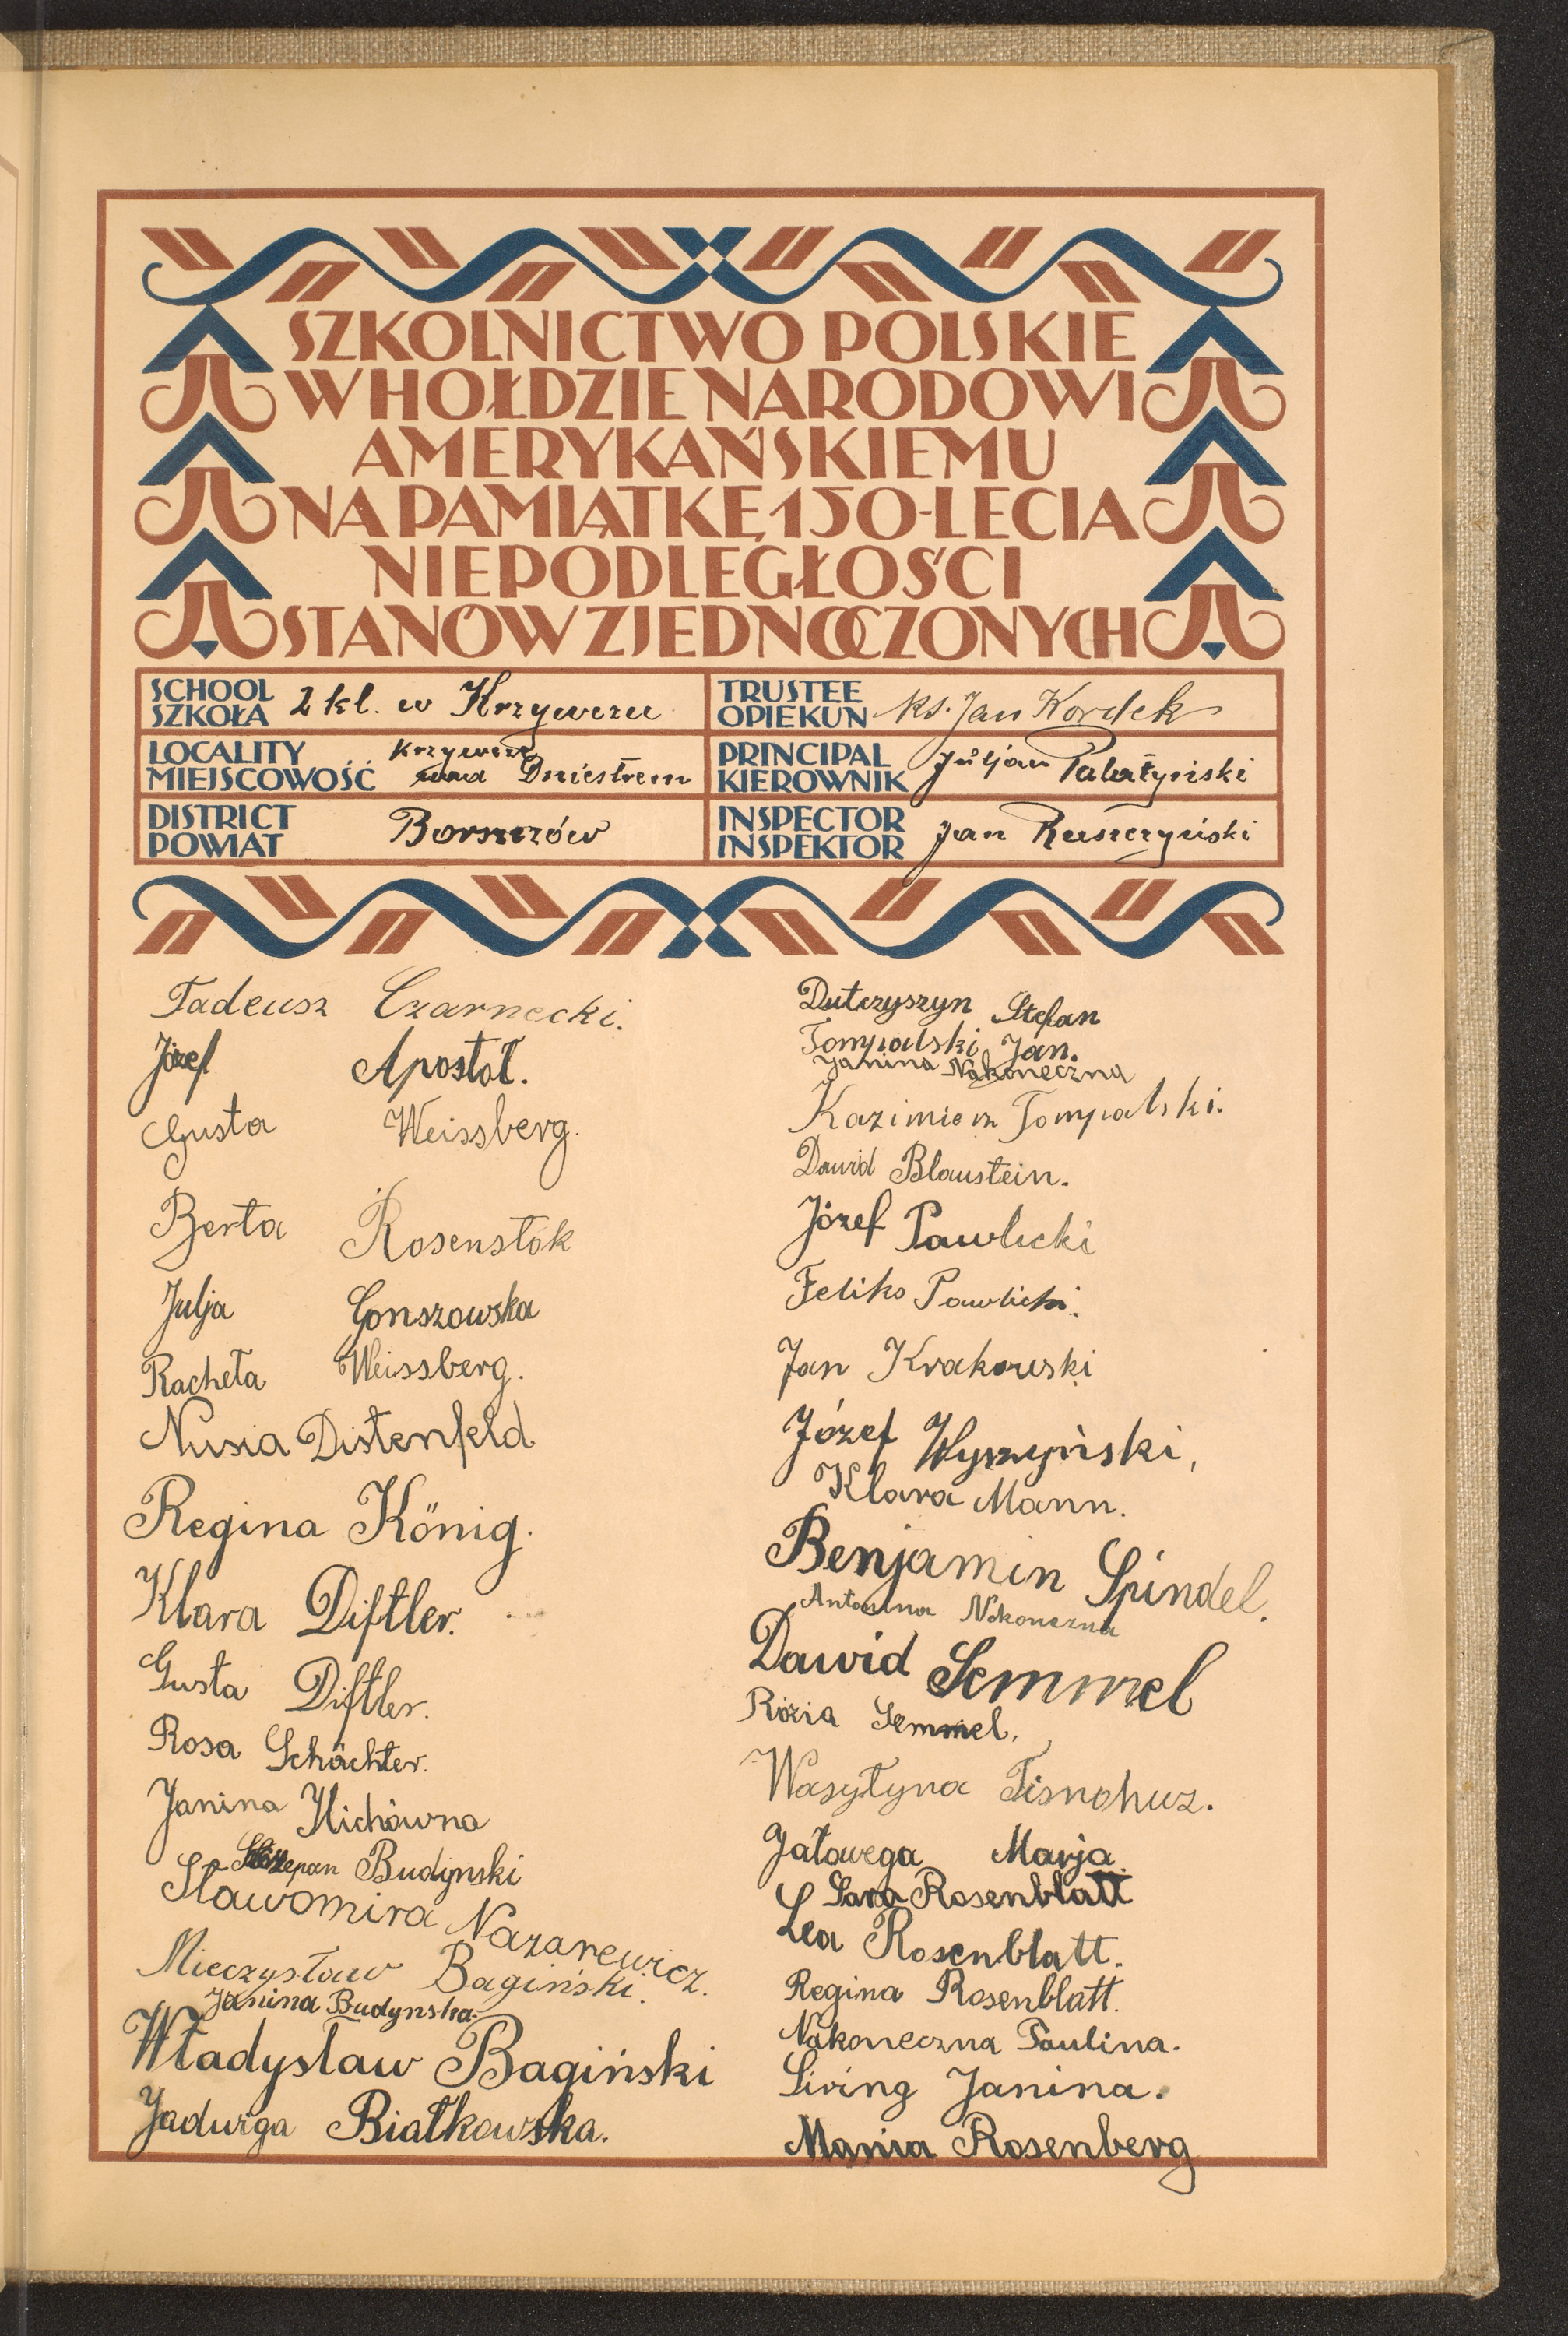 SZKOLNICTWO POLSKIE
W HOŁDZIE NARODOWI
AMERYKAŃSKIEMU
NA PAMIĄTKĘ 150-LECIA
NIEPODLEGŁOŚCI
STANÓW ZJEDNOCZONYCH
SCHOOL
SZKOŁA
2 kl. w Krzywczu
LOCALITY
MIEJSCOWOŚĆ
Krzywcze
nad Dniestrem
DISTRICT
POWIAT
Borszczów
TRUSTEE
OPIEKUN
ks. Jan Kordek
PRINCIPAL
KIEROWNIK
Juljan Pałatyński
INSPECTOR
INSPEKTOR
Jan Ruszczyński
Tadeusz Czarnecki.
Józef Apostoł.
Gusta Weissberg.
Berta Rosenstok
Julja Gonszowska
Racheła Weissberg.
Nusia Distenfeld
Regina König.
Klara Diftler.
Gusta Diftler.
Rosa Schächter.
Janina
Szczepan Budynski
Sławomira Nazarewicz.
Mieczysław Bagiński.
Janina Budynska.
Władysław Bagiński
Jadwiga Białkowska.
Dutczyszyn Stefan
Tompalski Jan.
Janina Nakoneczna
Kazimierz Tompalski.
Dawid Blaustein.
Józef Pawlicki
Feliks Pawlicki.
Jan Krakowski
Józef Wyszyński,
Klara Mann.
Benjamin Spindel.
Antonina Nokoneczna
Dawid Semmel
Rózia Semmel.
Wasyłyna Tisnohuz.
Jałowega Marja.
Sara Rosenblatt
Lea Rosenblatt.
Regina Rosenblatt.
Nakoneczna Paulina.
Siring Janina.
Mania Rosenberg